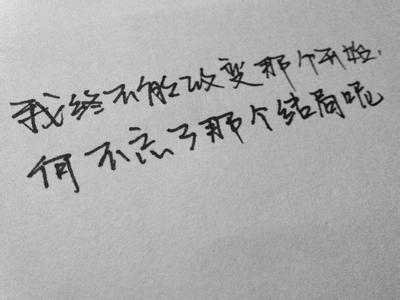 我终不能改变那个开始.
何不忘了那个结局呢